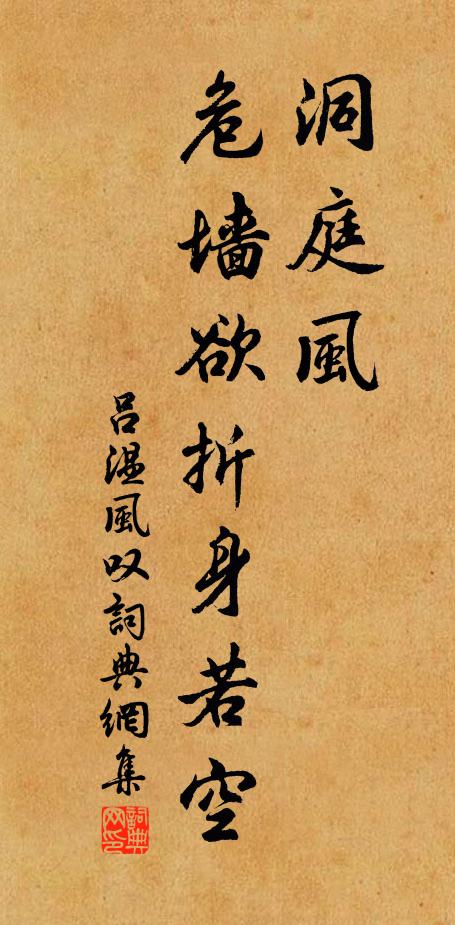 洞庭風
危墙欲折身若空
吕温風叹詞典網集
詞典网印